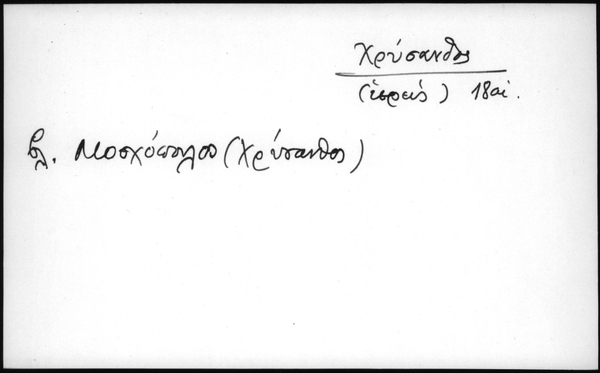 Χρύσανθος
(ἱερεύς) 18 αἰ.
βλ. Μοσχόπουλος (Χρύσανθος)